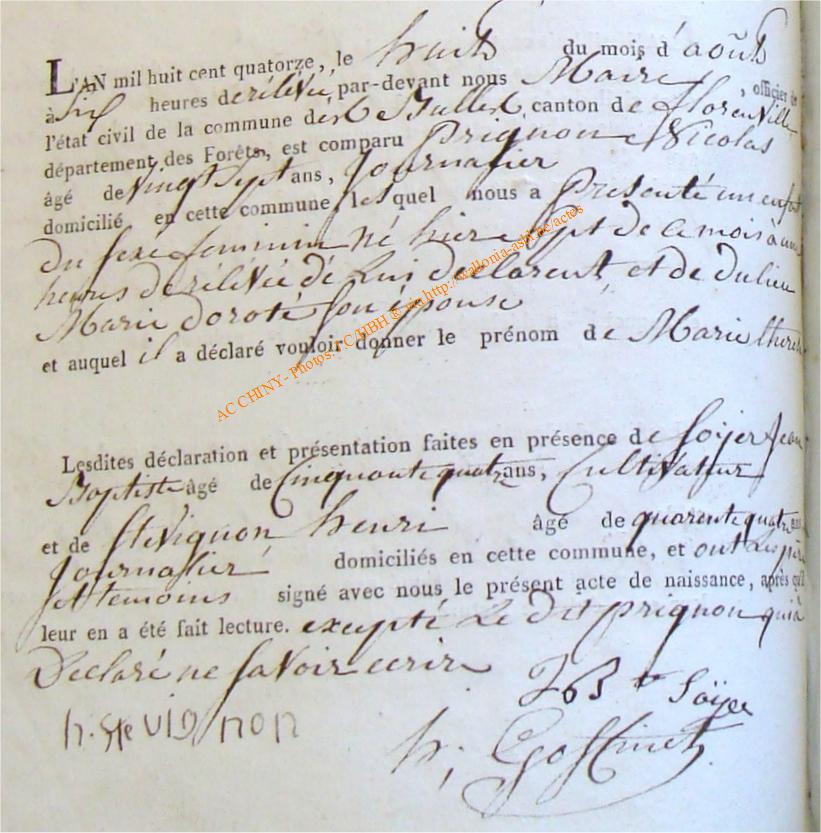 L'AN mil huit cent quatorze, le huit du mois d'août
à Six heures de rélévée, par-devant nous Maire, officier de
l'état civil de la commune des Bulles, canton de florenville
département des Forêts, est comparu Prignon Nicolas
âgé de vingt Sept ans, Journalier
domicilié en cette commune, lesquel nous a Presenté un enfant
du sexe feminin né hier sept de ce mois à une
heures de rélévée de Lui declarent, et de dulieu
Marie doroté son épouse
et auquel il a déclaré vouloir donner le prénom de Marie therese
Lesdites déclaration et présentation faites en présence de Soÿer Jean
Baptiste âgé de Cinquante quatre ans, Cultivateur
et de Stévignon, henri âgé de quarente quatre ans
Journalier domiciliés en cette commune, et ont Les pere
et temoins signé avec nous le présent acte de naissance, après qu'il
leur en a été fait lecture. excepté Le dit prignon qui à
Declaré ne savoir ecrire
J B te Soÿer
h. Stevignon
h; Goffinet
AC CHINY - Photos: CAHBH © via http://wallonia-asbl.be/actes